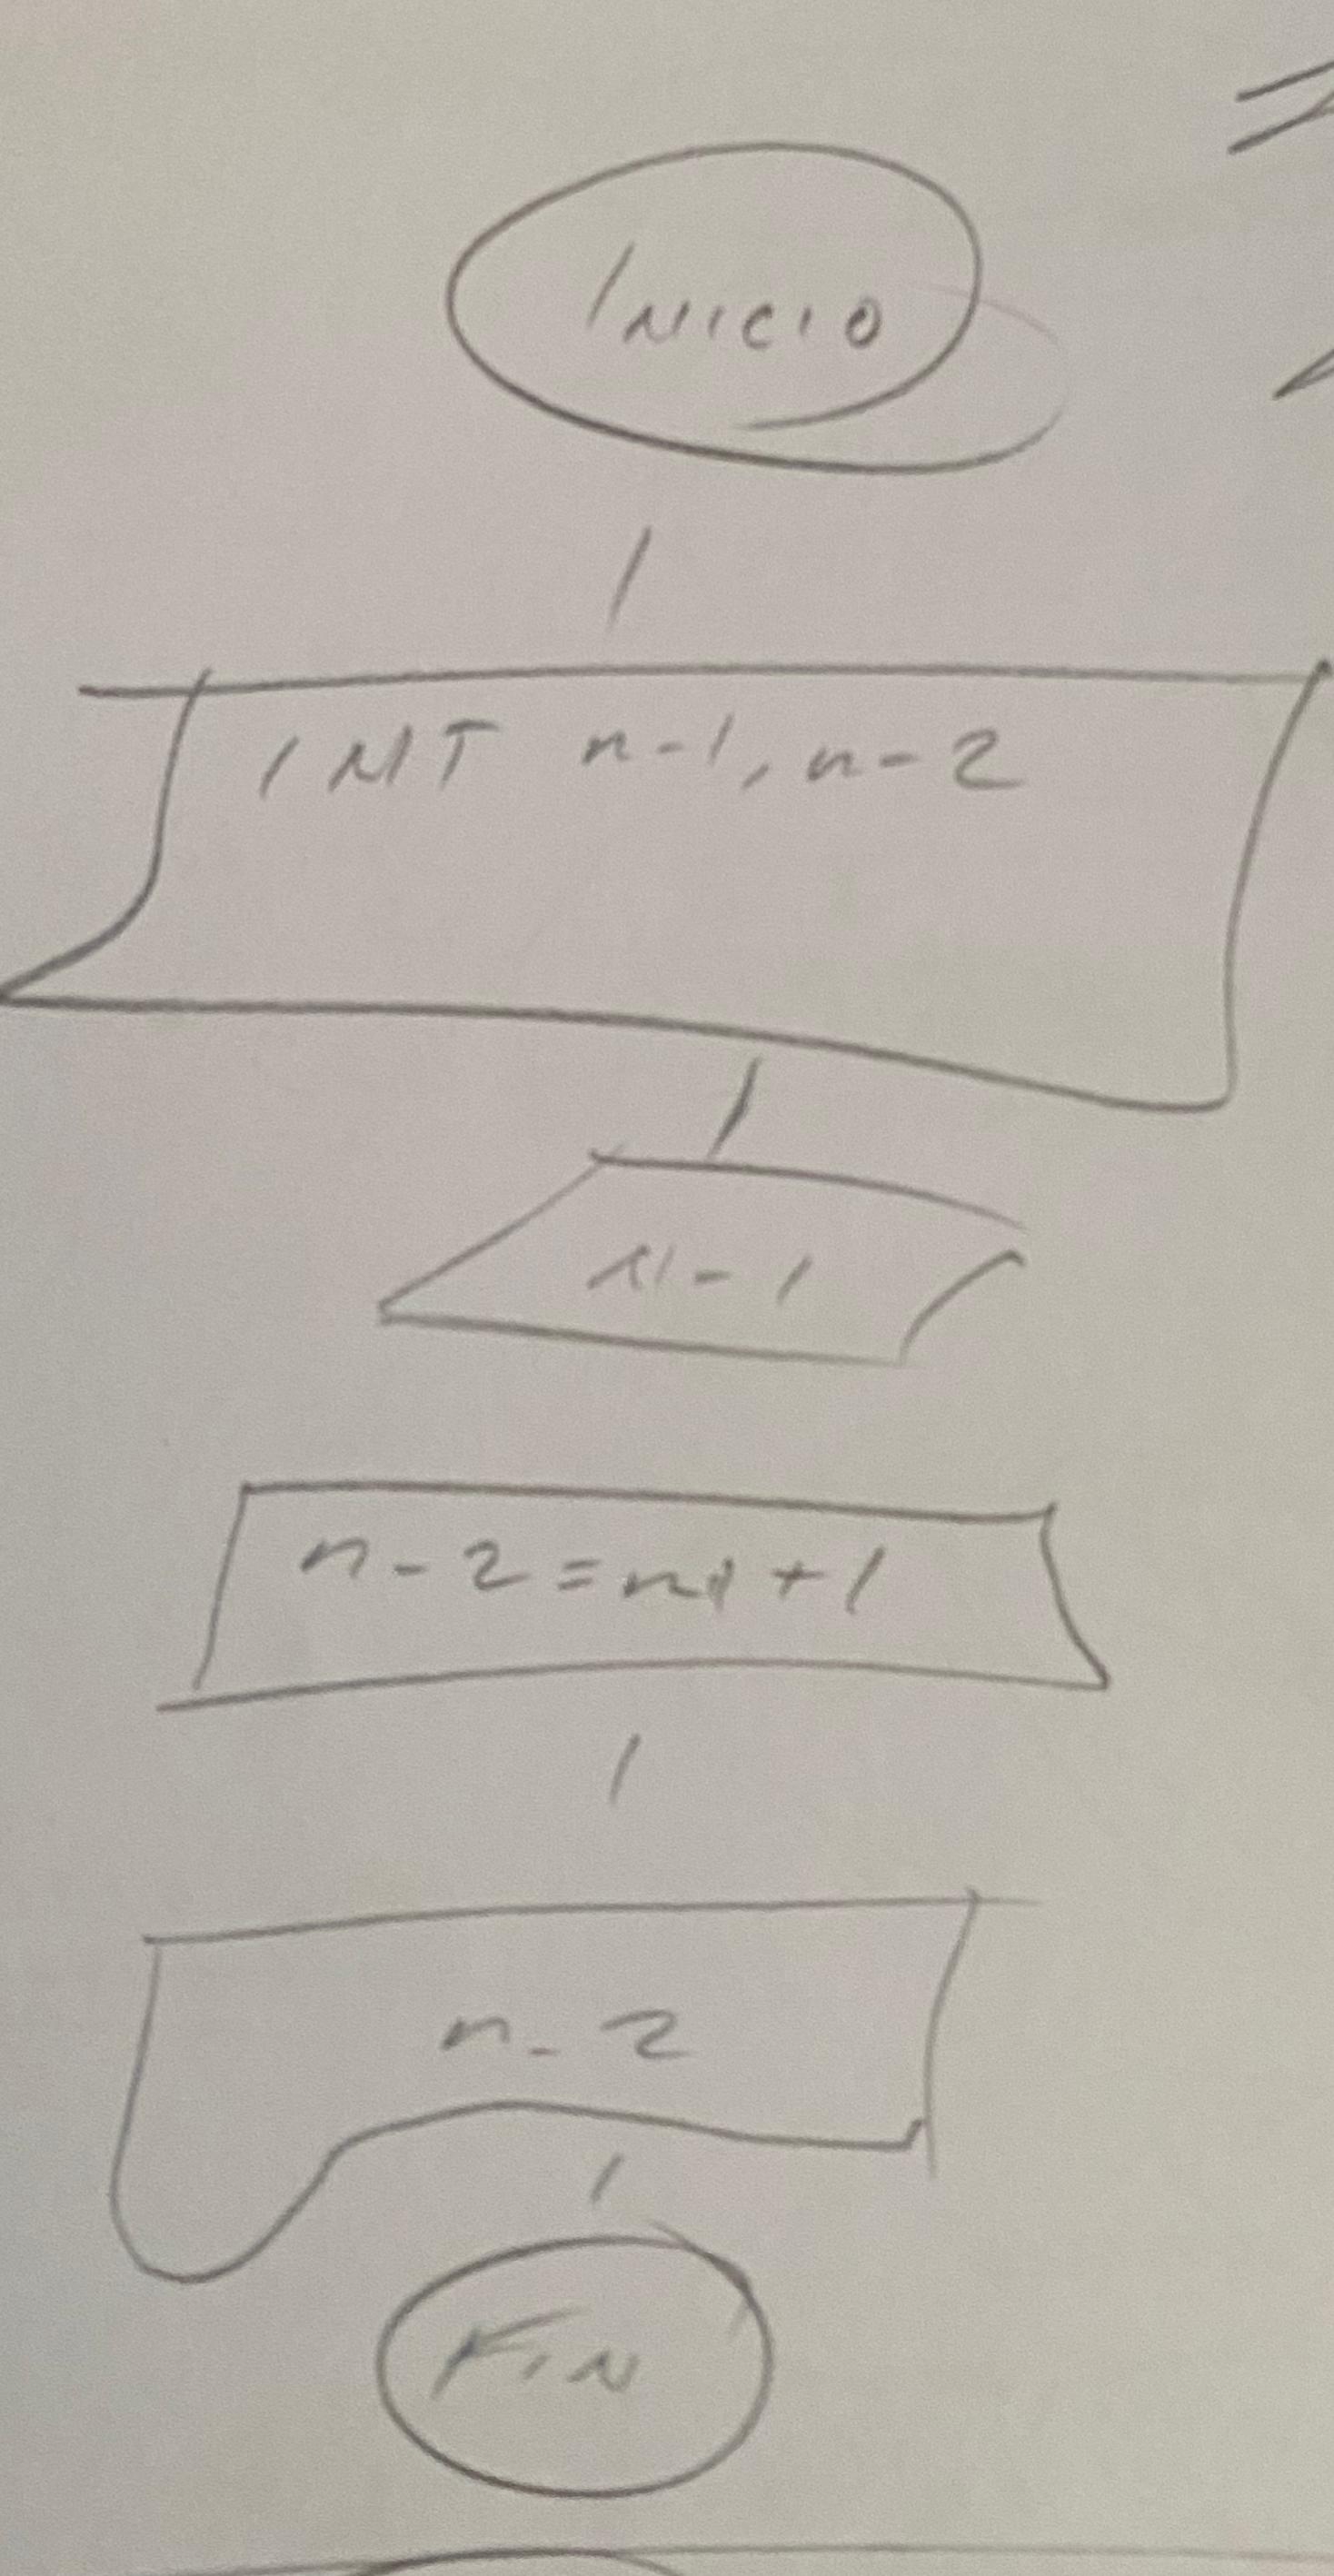 INICIO
INT n-1, n-2
n-1
n-2=n1+1
n-2
FIN